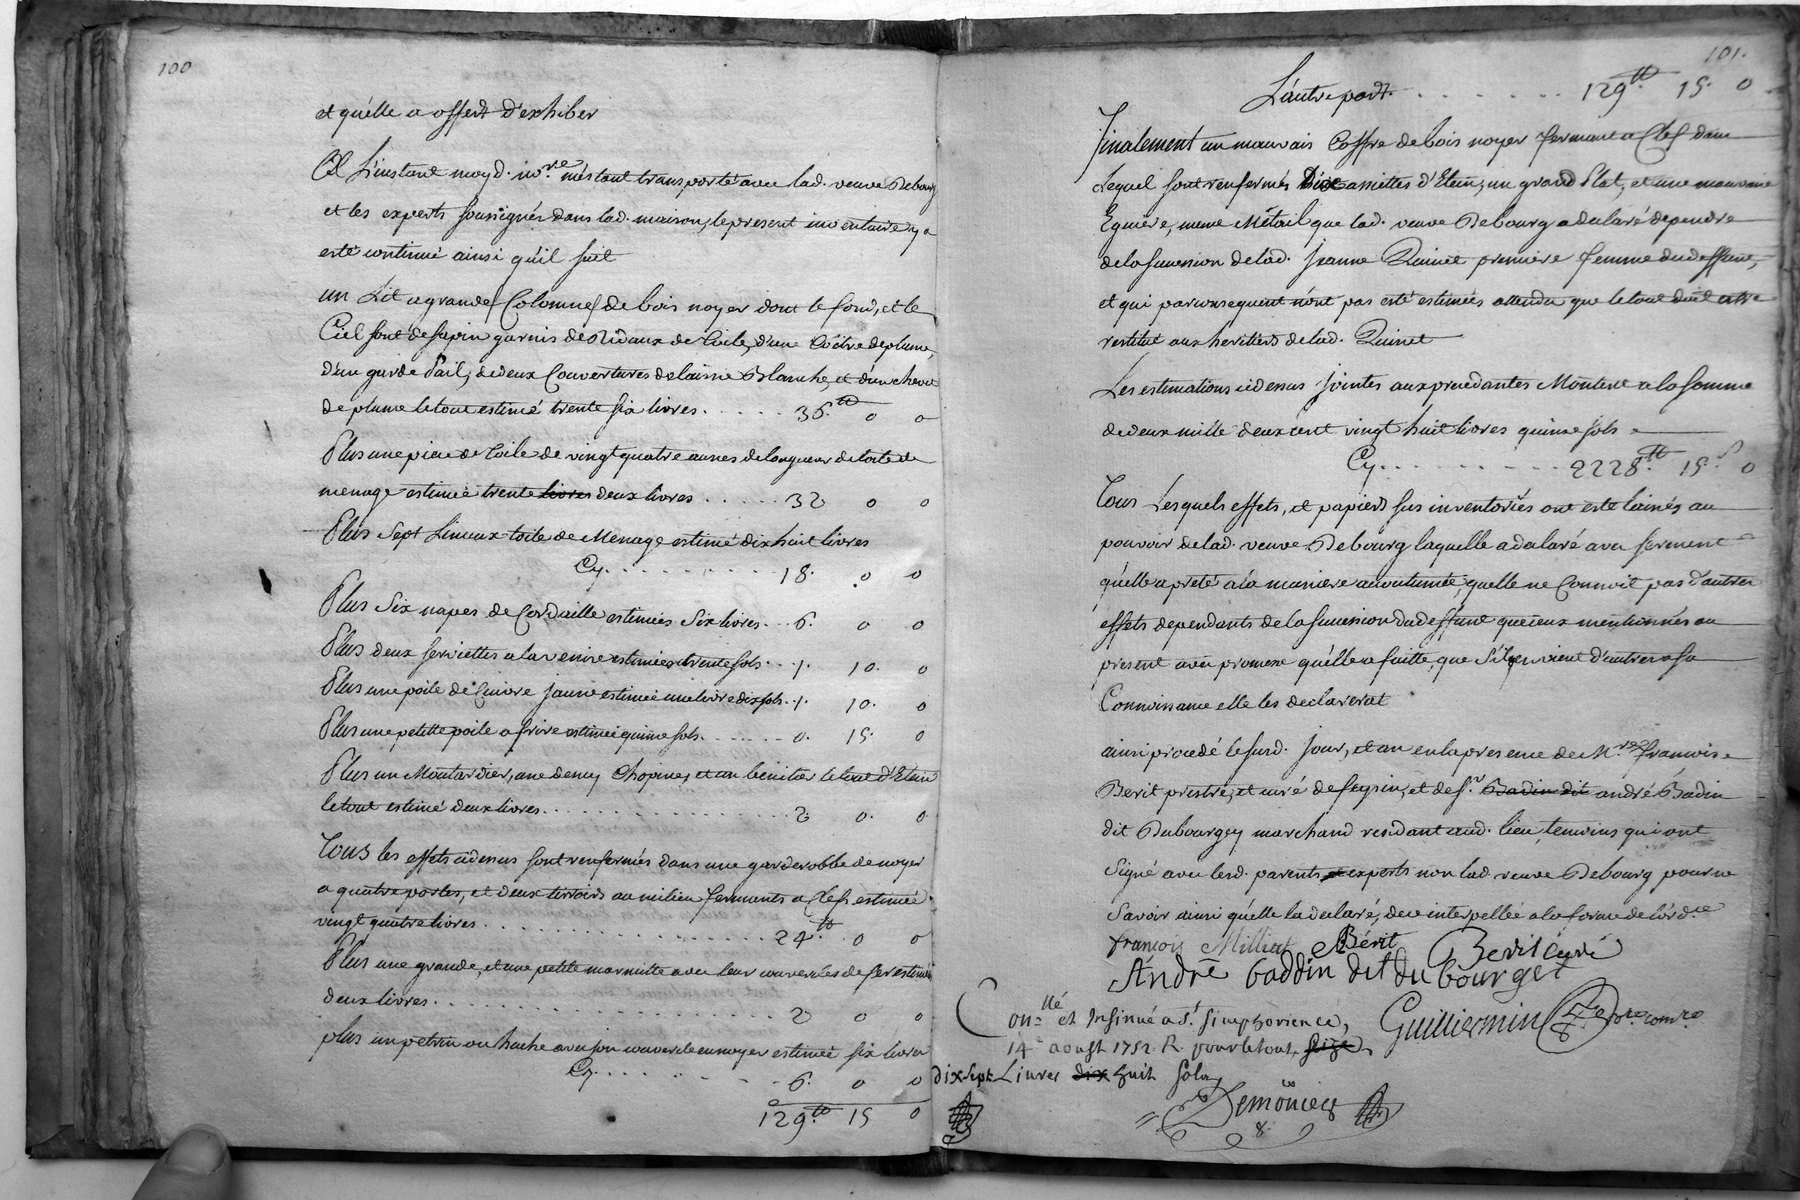 100
et qu'elle a offert d'exhiber
A L'instant moyd. no.re m'estant transporté avec lad. veuve Debourg
et les experts soussignés dans lad. maison, le present inventaire y a
esté continué ainsi qu'il suit
un Lit a grandes Colomnes de bois noyer dont le fond, et le
Ciel sont de sapin garnis de Ridaux de toile, d'une Coëtre de plume,
d'un garde pail, de deux Couvertures de laisne Blanche, et d'un chevet
de plume le tout estimé trente six livres. . . . . . 36.tt 0 0
Plus une piece de toile de vingt quatre aunes de longueur de toile de
menage estimée trente livres deux livres . . . . . 32 0 0
Plus sept Linceux toile de Menage estimé dix huit livres
Cy. . . . . . . . . 18. 0 0
Plus six napes de Cordaille estimées six livres. . . 6. 0 0
Plus deux serviettes a la venise estimées trente sols. . . 1. 10. 0
Plus une poile de Cuivre jaune estimée une livre dix sols. . 1. 10. 0
Plus une petitte poile a frire estimée quinse sols. . . . . . 0. 15. 0
Plus un Moutardier, une demy Chopine, et un benitier le tout d'Etain
le tout estimé deux livres. . . . . . . . . . . . . . . 2 0. 0
Tous les effets cidessus sont renfermés dans une garderobbe de noyer
a quatre portes, et deux tirroirs au milieu fermants a Clefs estimée
vingt quatre livres. . . . . . . . . . . . . . . . 24.tt 0 0
Plus une grande, et une petite marmitte avec leur couvercles de fer estimés
deux livres. . . . . . . . . . . . . . . . . . . 2 0 0
plus un petrin ou huche avec son couvercle en noyer estimé six livres
Cy. . . . . . . 6. 0 0
129.tt 15 0
101.
L'autre part. . . . . . . . 129.tt 15. 0
Finalement un mauvais Coffre de bois noyer fermant a Clef dans
Lequel sont renfermés Dix assiettes d'Etain, un grand Plat, et une mauvaise
Eguiere, meme Métail que lad. veuve Debourg a declaré dependre
de la succession de lad. Jeanne Quinet premiere femme du deffunt,
et qui par consequent n'ont pas esté estimées attendu que le tout doit estre
restitué aux heritiers de lad. Quinet
Les estimations cidessus jointes aux precedantes Montent a la somme
de deux mille deux cent vingt huit livres quinse sols
Cy. . . . . . . . . 2228.tt 15.s 0
Tous Lesquels effets, et papiers sus inventoriés ont esté laissés au
pouvoir de lad. veuve Debourg laquelle a declaré avec serment
qu'elle a preté a la maniere accoutumée, quelle ne Connoit pas d'autres
effets dependants de la succession dud deffunt que ceux mentionnés au
present avec promesse qu'elle a faitte, que S'il en vient d'autres a sa
Connoissance elle les declarerat
ainsi procedé lesusd. jour, et an en la presence de M.re françois
Berit prestre, et curé de feysin, et de s.r Badin dit andré Badin
dit Dubourgey marchand residant aud. lieu, temoins qui ont
signé avec lesd. parents et experts non lad veuve Debourg pour ne
savoir ainsi qu'elle la declaré, de ce interpellée a la forme de l'ord.ce
françois Milliat Bérit Berit curé
André baddin dit du bourget
Guilliermin
Con.llé et Insinué a s.t simphorience,
14.e aoust 1752. R. pour le tout, seize
dix sept Livres dix huit sols
Demoniecq